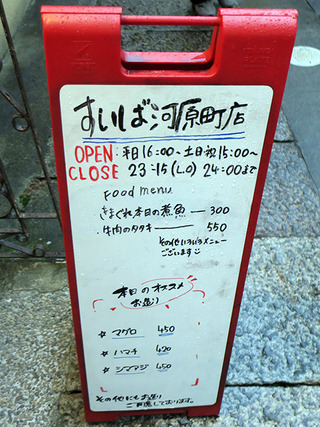 すいば河原町店
OPEN: 平日16:00~土日祝15:00~
CLOSE 23:15(L.O) 24:00まで
Food menu
きまぐれ本日の煮魚 — 300
牛肉のタタキ — 550
その他いろいろメニュー
ございます
本日のオススメ
お造り
☆ マグロ 450
☆ ハマチ 420
☆ シマアジ 450
その他にもお造り
ご用意しております。